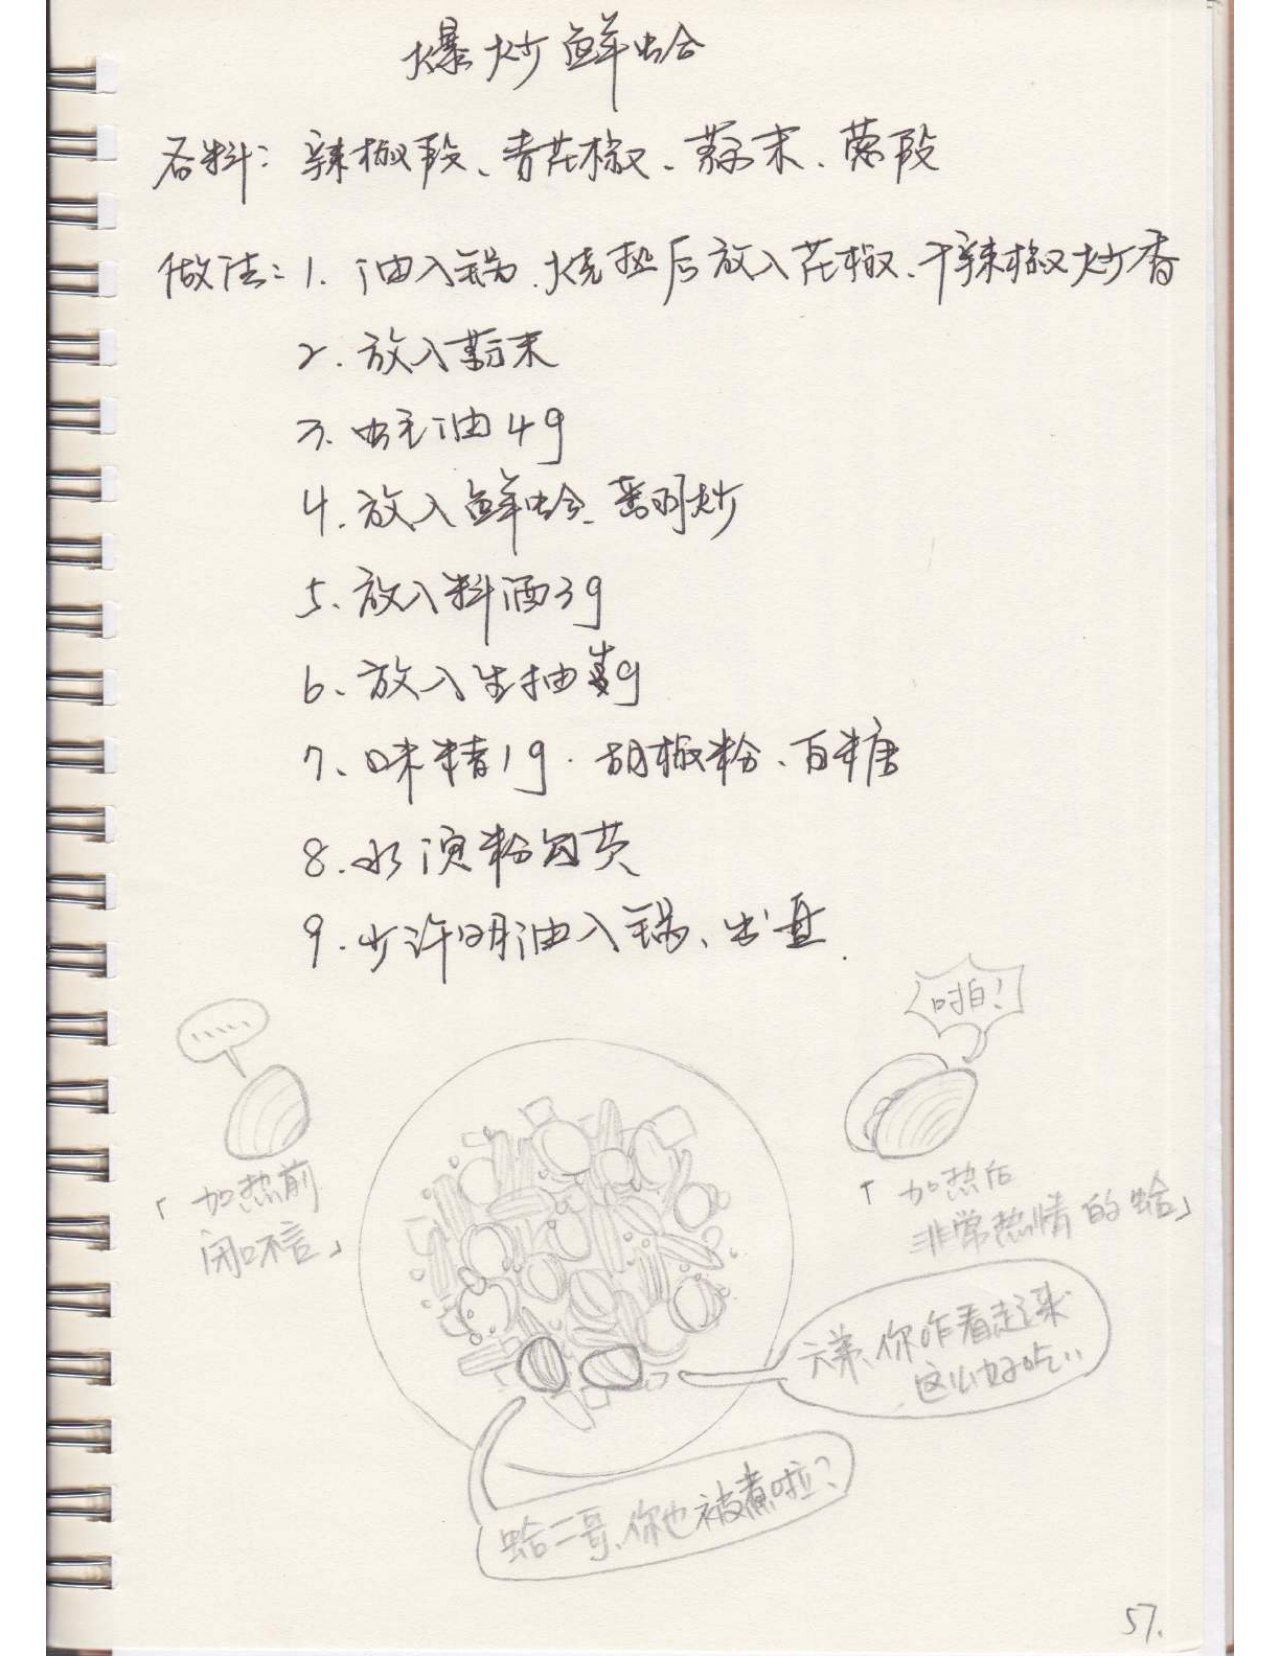 爆炒鲜蛤
各料：辣椒段、青花椒、蒜末、葱段
做法：1.油入锅、烧热后放入花椒、干辣椒炒香
2.放入蒜末
3.蚝油4g
4.放入鲜蛤、翻炒
5.放入料酒3g
6、放入生抽g
7、味精1g.胡椒粉、白糖
8.水淀粉勾芡
9.少许明油入锅、出盘.
啪！
.....
「加热前
闭口不言」
「加热后
非常热情的蛤」
六弟、你咋看起来
这么好吃..
蛤二哥、你也被煮啦？
57.